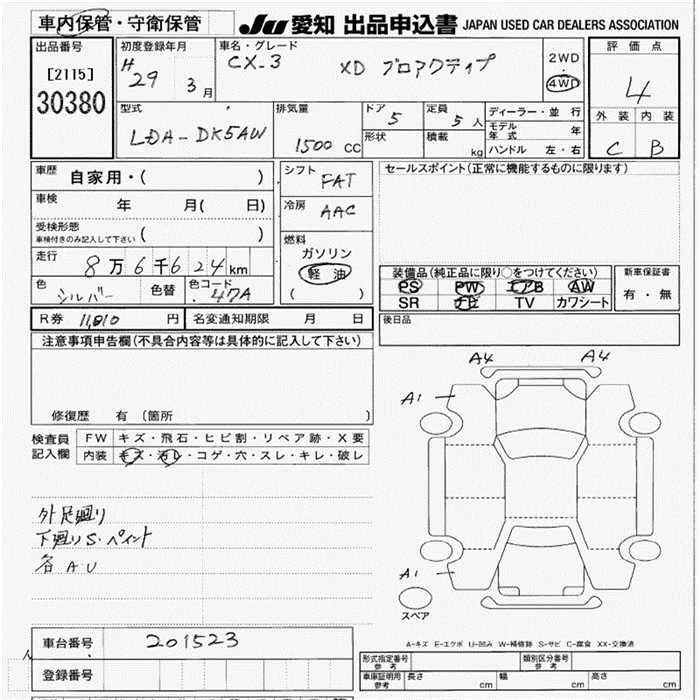 車内保管・守衛保管
JU 愛知 出品申込書 JAPAN USED CAR DEALERS ASSOCIATION
出品番号
[2115]
30380
初度登録年月
H 29 3月
車名・グレード
CX-3 XD プロアクティブ
2WD
4WD
評価点
4
外装 内装
C B
型式
LDA-DK5AW
排気量
1500 CC
ドア 5
形状
定員 5人
積載 kg
ディーラー・並行
モデル年式 年
ハンドル 左・右
車歴
自家用・( )
車検
年 月( 日)
受検形態
車検付きのみ記入して下さい ( )
走行
8万6千624km
色
シルバー
色替
色コード
47A
シフト FAT
冷房 AAC
燃料
ガソリン
軽油
( )
セールスポイント(正常に機能するものに限ります)
装備品(純正品に限り○をつけてください)
PS PW エアB AW
SR ナビ TV カワシート
新車保証書
有・無
R券 11,010 円
名変通知期限 月 日
後日品
注意事項申告欄(不具合内容等は具体的に記入して下さい)
修復歴 有(箇所 )
検査員
記入欄
FW キズ・飛石・ヒビ割・リペア跡・X要
内装 キズ・汚レ・コゲ・穴・スレ・キレ・破レ
外足廻り
下廻りS・ペイント
各AU
A4 A4
A1
A1
スペア
A-キズ E-エクボ U-凹み W-補修跡 S-サビ C-腐食 XX-交換済
車台番号 201523
登録番号
形式指定番号
参考
類別区分番号
参考
車庫証明用
参考
長さ cm 幅 cm 高さ cm